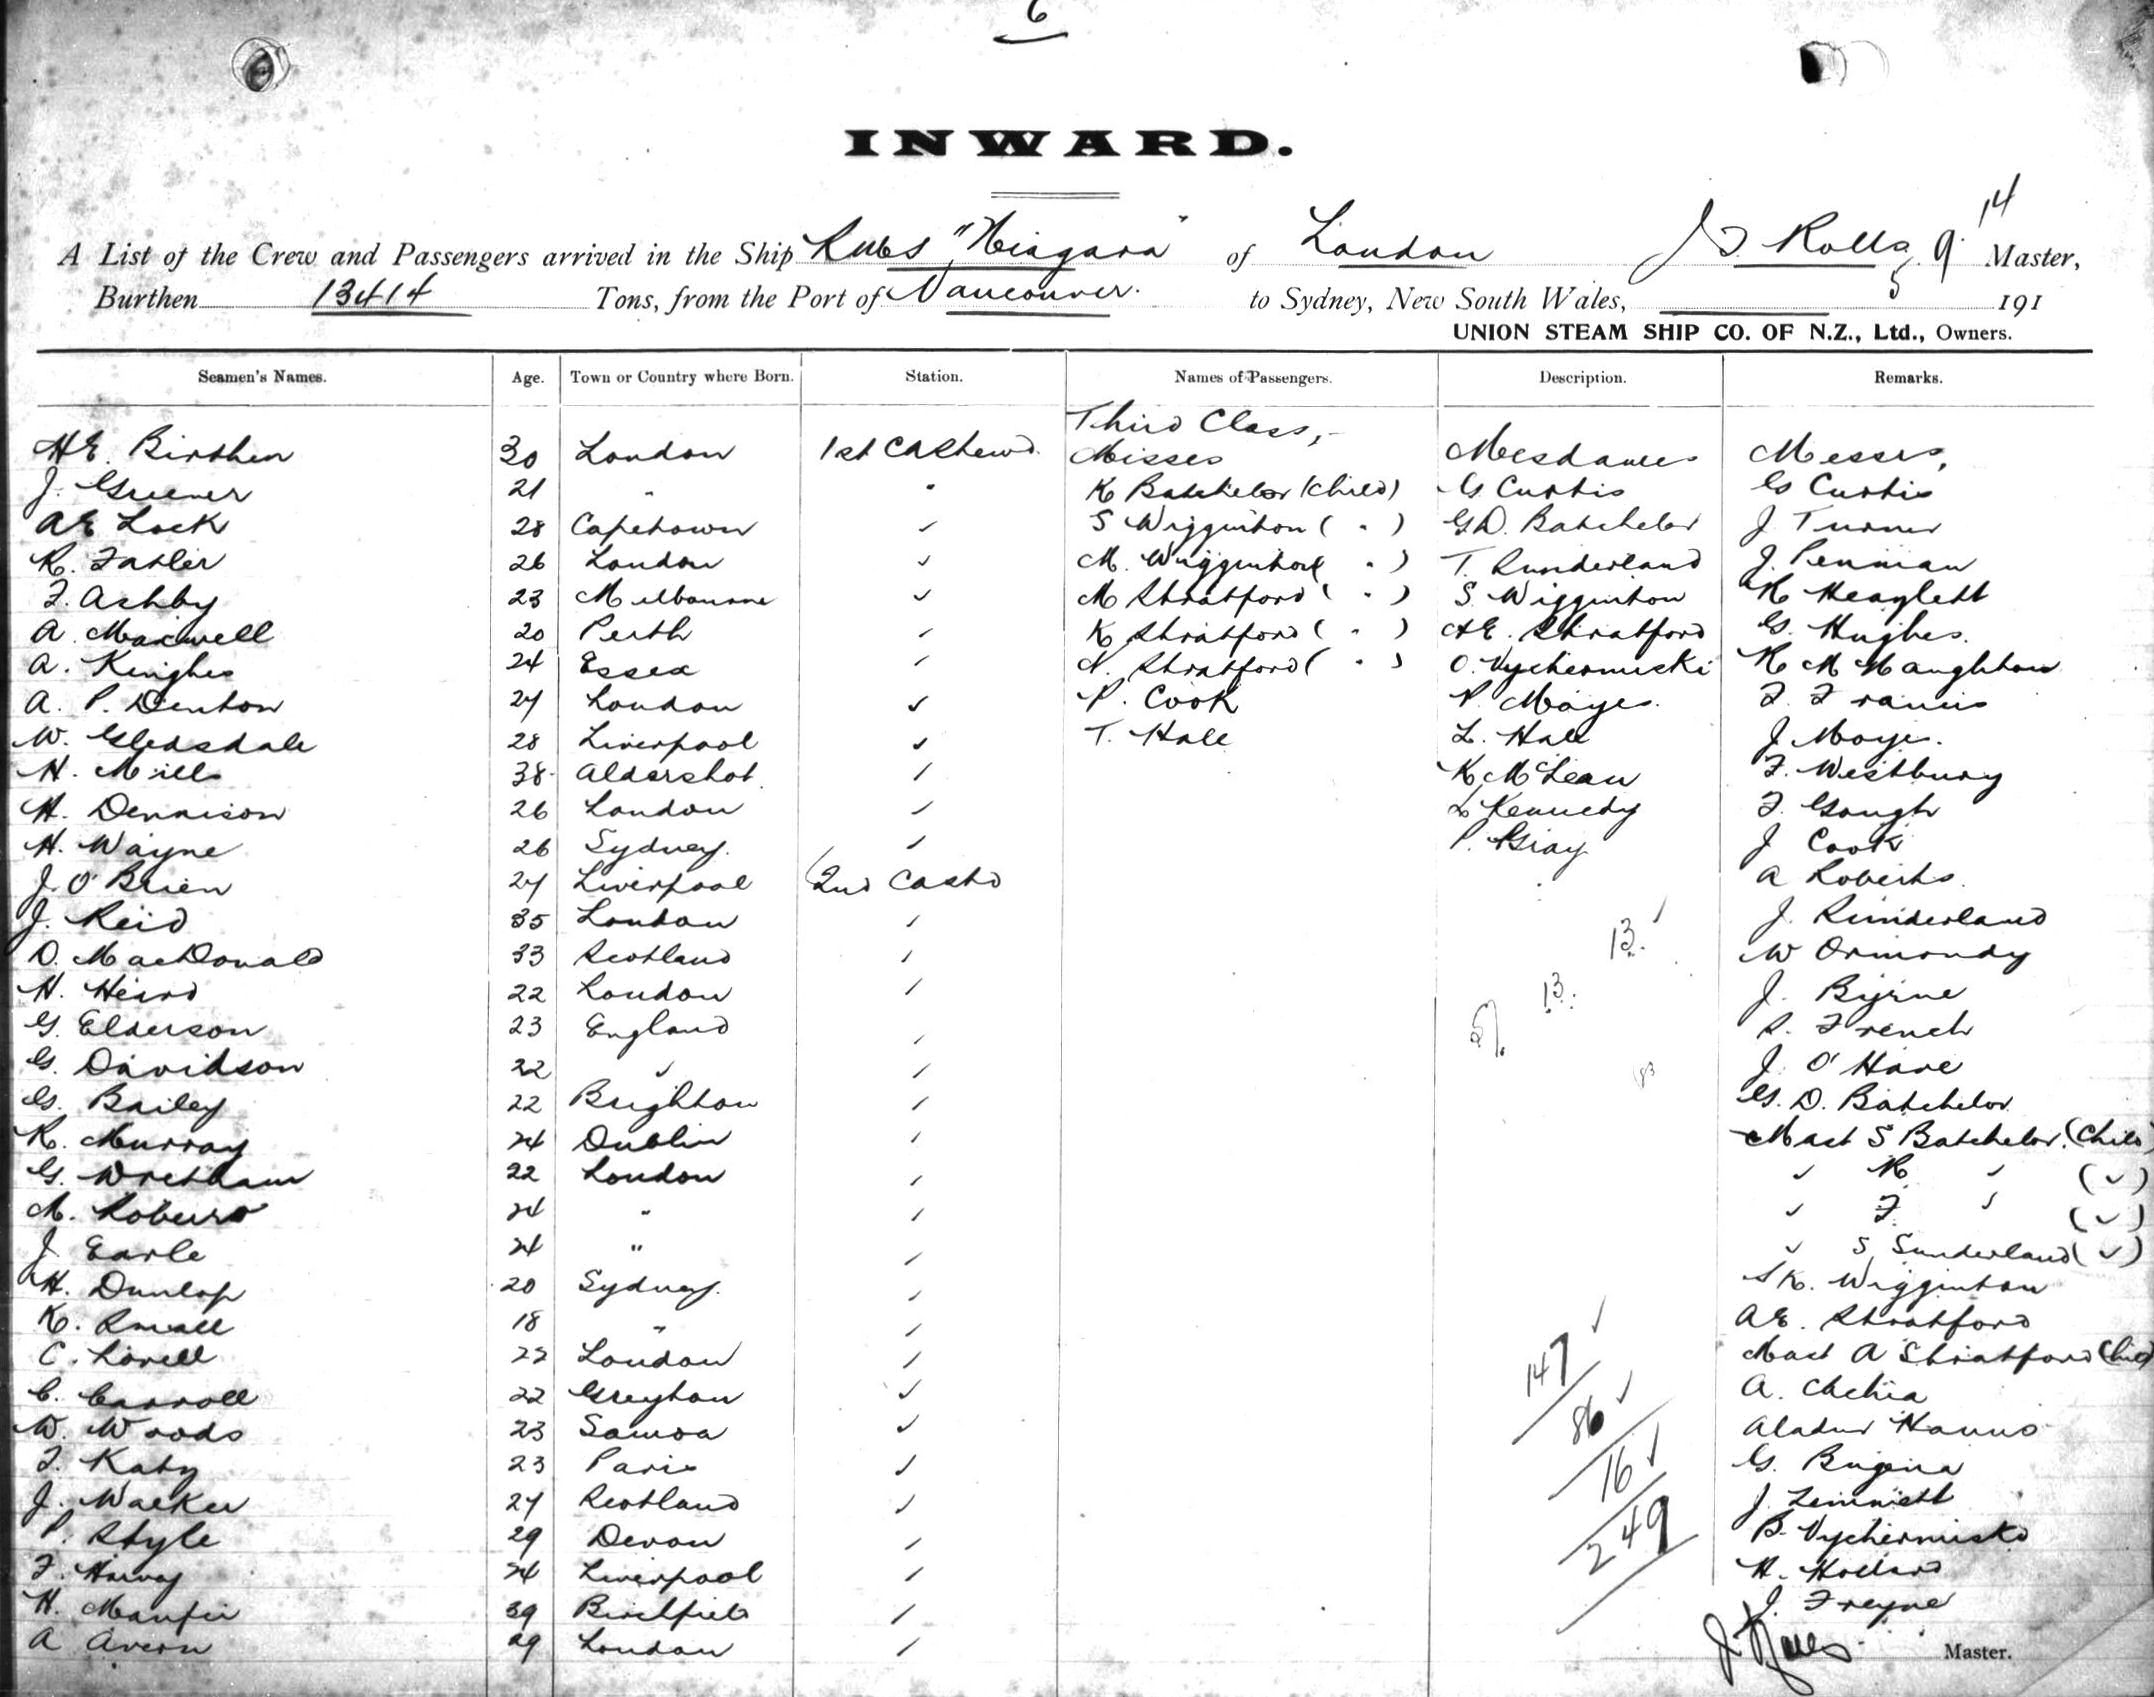 6
INWARD.
14
A List of the Crew and Passengers arrived in the Ship RMS "Niagara" of London J. Rolls 5. 9. Master,
Burthen 13414 Tons, from the Port of Vancouver. to Sydney, New South Wales, 191
UNION STEAM SHIP CO. OF N.Z., Ltd., Owners.
Seamen's Names. Age. Town or Country where Born. Station. Names of Passengers. Description. Remarks.
Third Class,-
H E. 30 London 1st Misses Mesdames Messrs,
J. 21 " " K Batchelor (Child) G Curtis G Curtis
A E Lock 28 Capetown ✓ S Wigginton ( " ) G D. Batchelor J Turner
R. 26 London ✓ M. Wigginton ( " ) T. Sunderland J. Penman
F. Ashby 23 Melbourne ✓ M Stratford ( " ) S. Wigginton H Heaglett
A. Maxwell 20 Perth ✓ K Stratford ( " ) A E. Stratford G. Hughes.
A. 24 Essex ✓ N. Stratford ( " ) O. M
A. P. Denton 27 London ✓ P. Cook P. Mayes. F. Francis
W. Gledsdale 28 Liverpool ✓ T. Hale L. Hale J Mayes.
H. Mills 38 Aldershot. ✓ K McLean F. Westbury
H. Dennison 26 London ✓ L Kennedy F. Gough
H. Wayne 26 Sydney. ✓ P. Gray J Cook
J. O'Brien 27 Liverpool 2nd A Roberts.
J. Reid 35 London ✓ J. Sunderland
D. MacDonald 33 Scotland ✓ 13. ✓ W Ormondy
H. Heard 22 London ✓ 13. J. Byrne
G. Elderson 23 England ✓ S. French
G. Davidson 22 ✓ ✓ J. O'Hare
G. Bailey 22 Brighton ✓ G. D. Batchelor
R. Murray 24 Dublin ✓ Mast S Batchelor. (Child)
G. Wretham 22 London ✓ ✓ R. ✓ (✓)
M. 24 " ✓ ✓ F. ✓ (✓)
J Earle 24 " ✓ ✓ S. Sunderland (✓)
H. Dunlop 20 Sydney. ✓ S K. Wigginton
K. Small 18 " ✓ A E. Stratford
C. Lovell 22 London ✓ 147 ✓ Mast A Stratford (Child)
C. Carroll 22 ✓ 86 ✓ A.
W. Woods 23 Samoa ✓
F. Katy 23 Paris ✓ 16 ✓ G.
J. Walker 27 Scotland ✓ 249 J.
P. Style 29 Devon ✓ B.
F. 24 Liverpool ✓ H. Hollard
H. 39 ✓ J. Freyne
A 29 London ✓ Master.